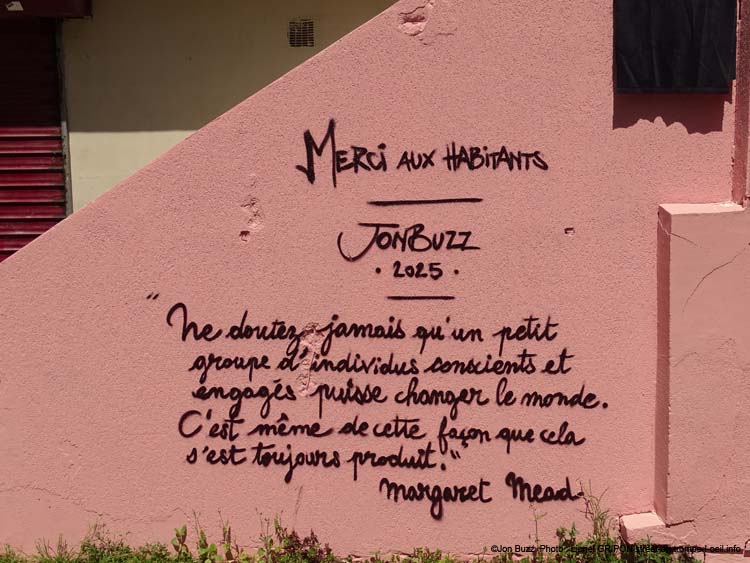 Merci aux habitants
JonBuzz
• 2025 •
"Ne doutez jamais qu'un petit
groupe d'individus conscients et
engagés puisse changer le monde.
C'est même de cette façon que cela
s'est toujours produit."
Margaret Mead.
©Jon Buzz, Photo